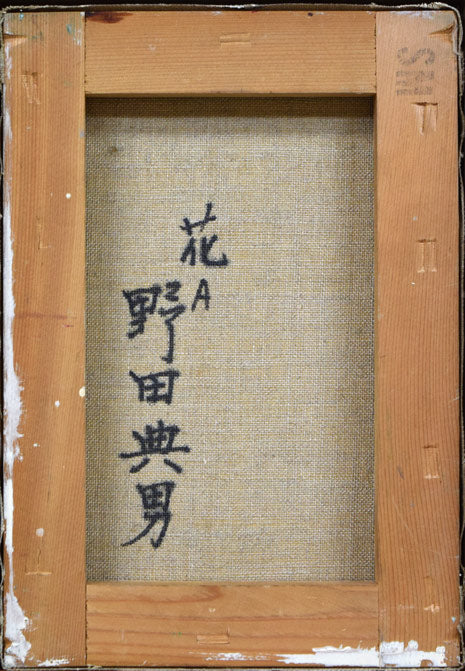 花A
野田典男
SM